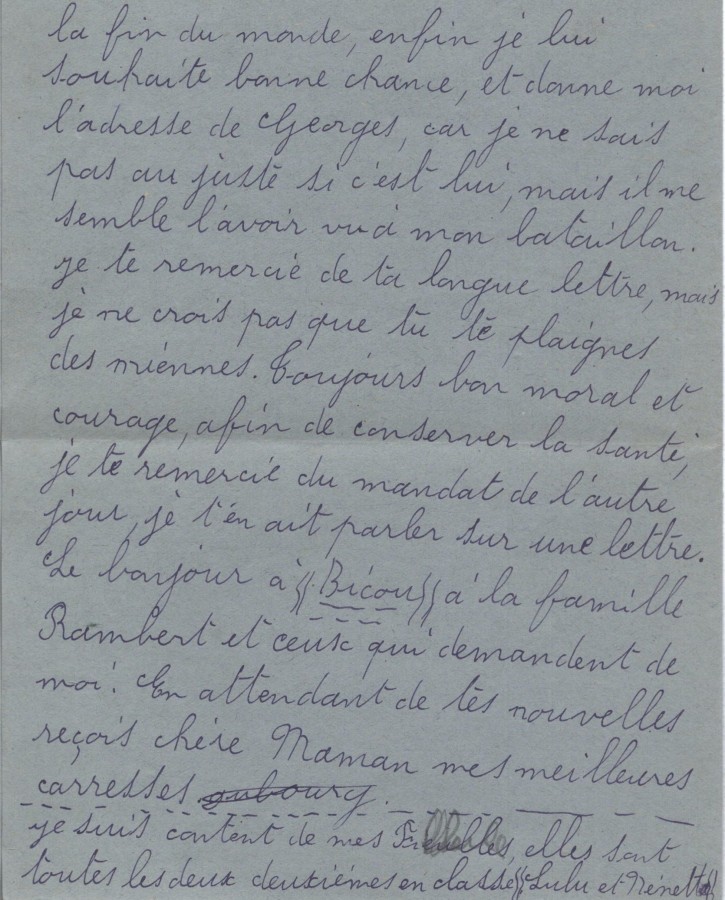 la fin du monde, enfin je lui
souhaite bonne chance, et donne moi
l'adresse de Georges, car je ne sais
pas au juste si c'est lui, mais il me
semble l'avoir vu à mon bataillon.
je te remercie de ta longue lettre, mais
je ne crois pas que tu te plaignes
des miennes. Toujours bon moral et
courage, afin de conserver la santé,
je te remercie du mandat de l'autre
jour, je t'en ait parler sur une lettre.
Le bonjour à "Bicou" à la famille
Rambert et ceux qui demandent de
moi. En attendant de tes nouvelles
reçois chère Maman mes meilleures
carresses.
je suis content de mes, elles sont
toutes les deux deuxièmes en classe "Lulu et Nénette"